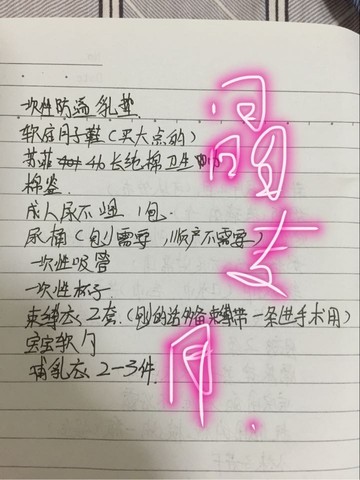 一次性防溢乳垫
软底月子鞋(买大点的)
苏菲 长纯棉卫生
棉签
成人尿不湿 1包.
尿桶(刨需要,顺产不需要)
一次性吸管
一次性杯子
束缚衣 2套.(刨的话外备束缚带一条进手术用)
宝宝软勺
哺乳衣 2-3件.